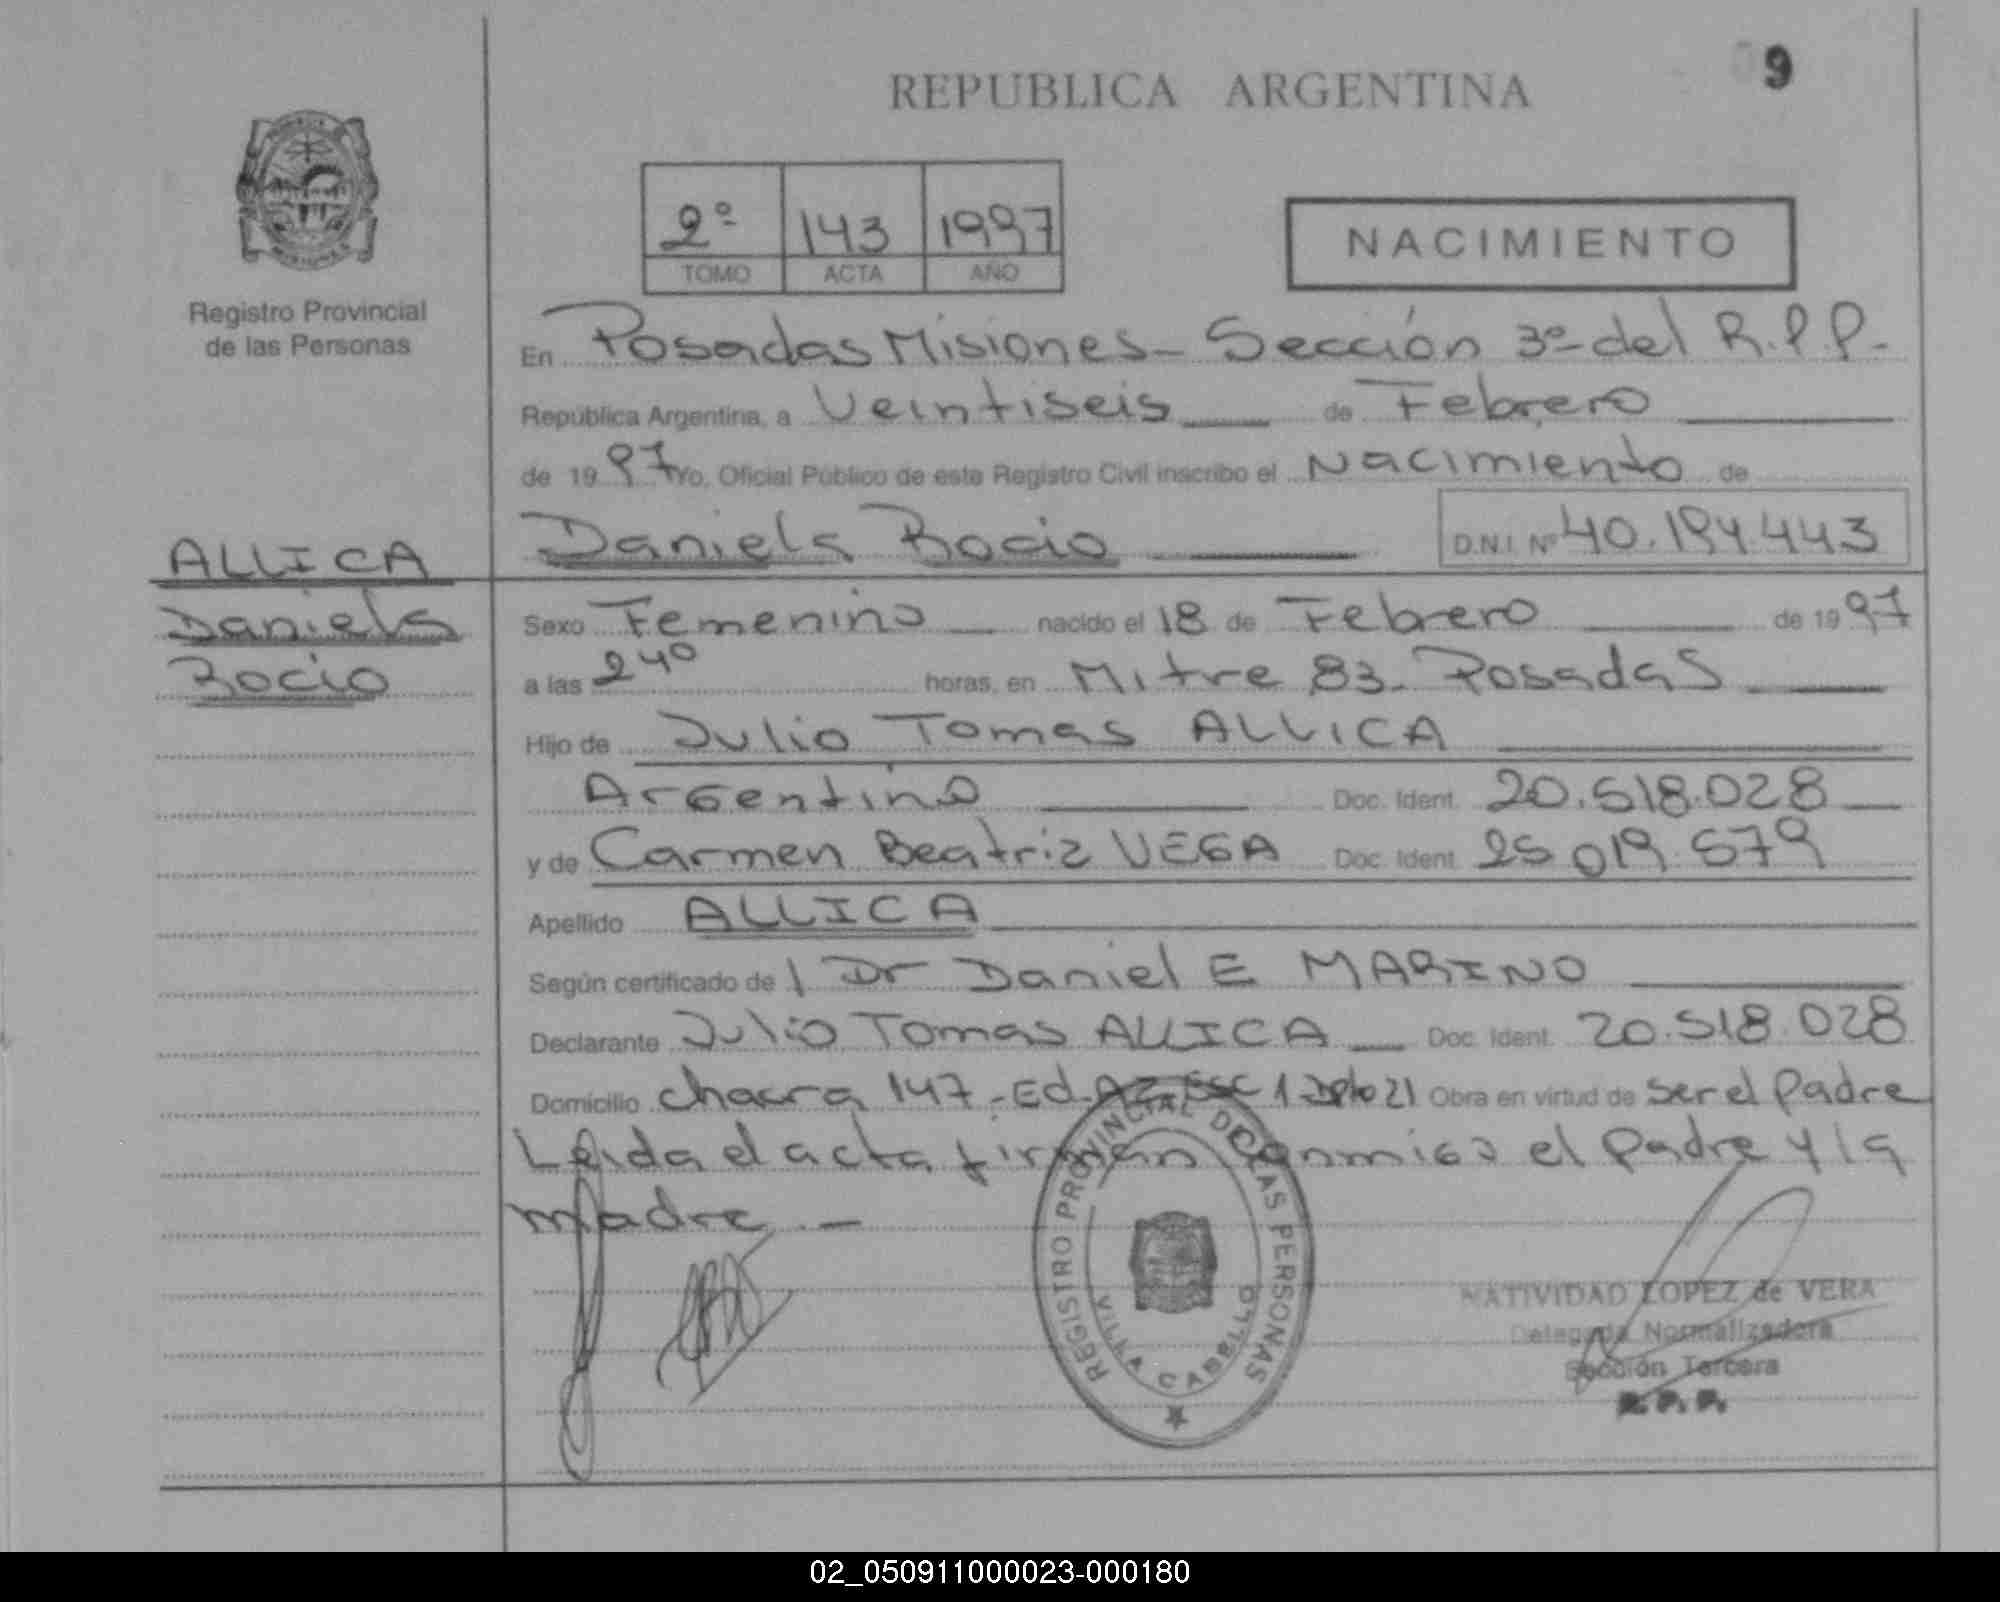 09
REPUBLICA ARGENTINA
2º 143 1997
TOMO ACTA AÑO
NACIMIENTO
Registro Provincial
de las Personas
En Posadas Misiones - Sección 3º del R.P.P.-
República Argentina, a Veintiseis de Febrero
de 1997 Yo, Oficial Público de este Registro Civil inscribo el Nacimiento de
Daniela Rocio D.N.I. Nº 40.194.443
ALLICA
Daniela
Rocio
Sexo Femenino nacido el 18 de Febrero de 1997
a las 24º horas, en Mitre 83 - Posadas
Hijo de Julio Tomas ALLICA
Argentino Doc. Ident. 20.518.028
y de Carmen Beatriz VEGA Doc. Ident. 25 019.579
Apellido ALLICA
Según certificado de / Dr Daniel E MARINO
Declarante Julio Tomas ALLICA Doc. Ident. 20.518.028
Domicilio chacra 147 - Ed. A2 Esc 1 Dpto 21 Obra en virtud de ser el Padre
Leida el acta firman conmigo el Padre y la
madre -
REGISTRO PROVINCIAL DE LAS PERSONAS
VILLA CABELLO
NATIVIDAD LOPEZ de VERA
Delegada Normalizadora
Sección Tercera
R.P.P.
02_050911000023-000180